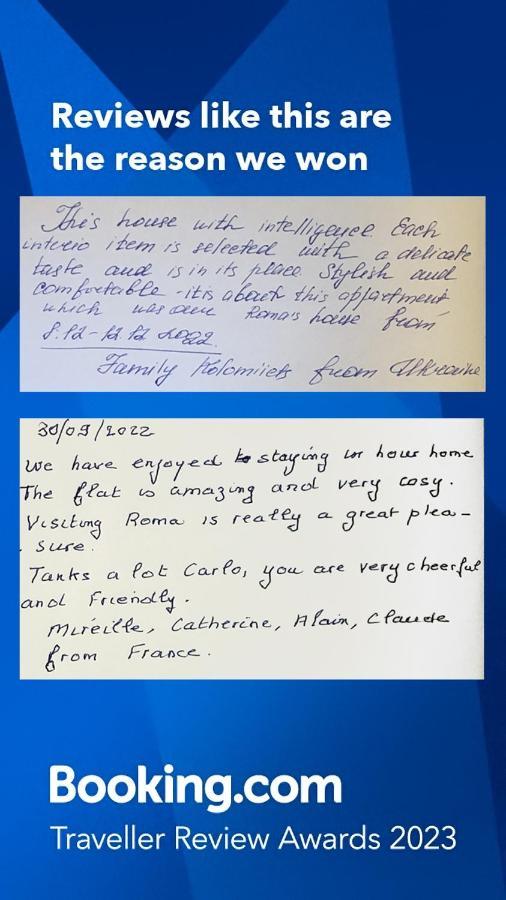 Reviews like this are
the reason we won
This house with intelligence. Each
interio item is selected with a delicate
taste and is in its place. Stylish and
comfortable - it is about this appartment
which was our Roma's house from
8.12-12.12 2022.
Family Kolomiiets from Ukraine
30/09/2022
We have enjoyed to staying in hour home
The flat is amazing and very cosy.
Visiting Roma is really a great plea-
sure.
Tanks a lot Carlo, you are very cheerful
and Friendly.
Mireille, Catherine, Alain, Claude
from France.
Booking.com
Traveller Review Awards 2023